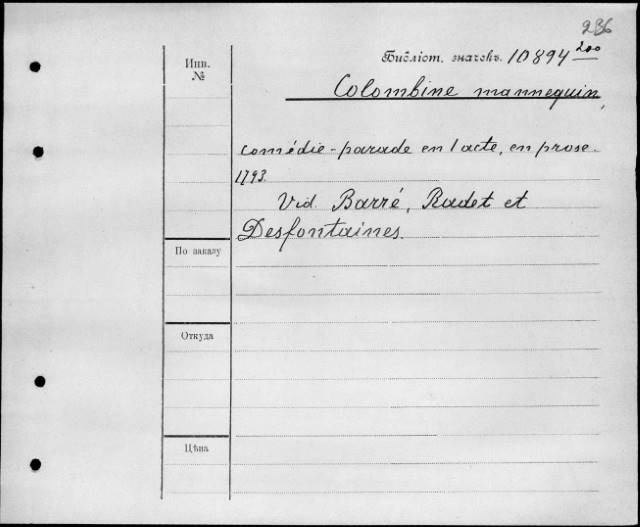 236
Инв. №
Библіот. значекъ. 10894 200
Colombine mannequin,
comédie-parade en 1 acte, en prose.
1793.
Vid. Barré, Radet et
Desfontaines.
По заказу
Откуда
Цѣна